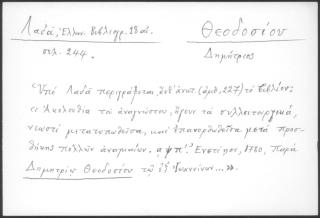 Λαδᾶ, Ἑλλην. Βιβλιογρ. 18 αἰ.
σελ. 244.
Θεοδοσίου
Δημήτριος
Ὑπὸ Λαδᾶ περιγράφεται, ἀνθ' ἀνωτ. (ἀριθ. 227) τὸ βιβλίον:
«Ἀκολουθία τοῦ ἀναγνώστου, ἤγουν τὰ συλλειτουργικά,
νεωστὶ μετατυπωθεῖσα, καὶ ἐπανορθωθεῖσα μετὰ προσ-
θήκης πολλῶν ἀναγκαίων. αψπ'. Ἐνετίησι, 1780. Παρὰ
Δημητρίῳ Θεοδοσίου τῷ ἐξ Ἰωαννίνων...».